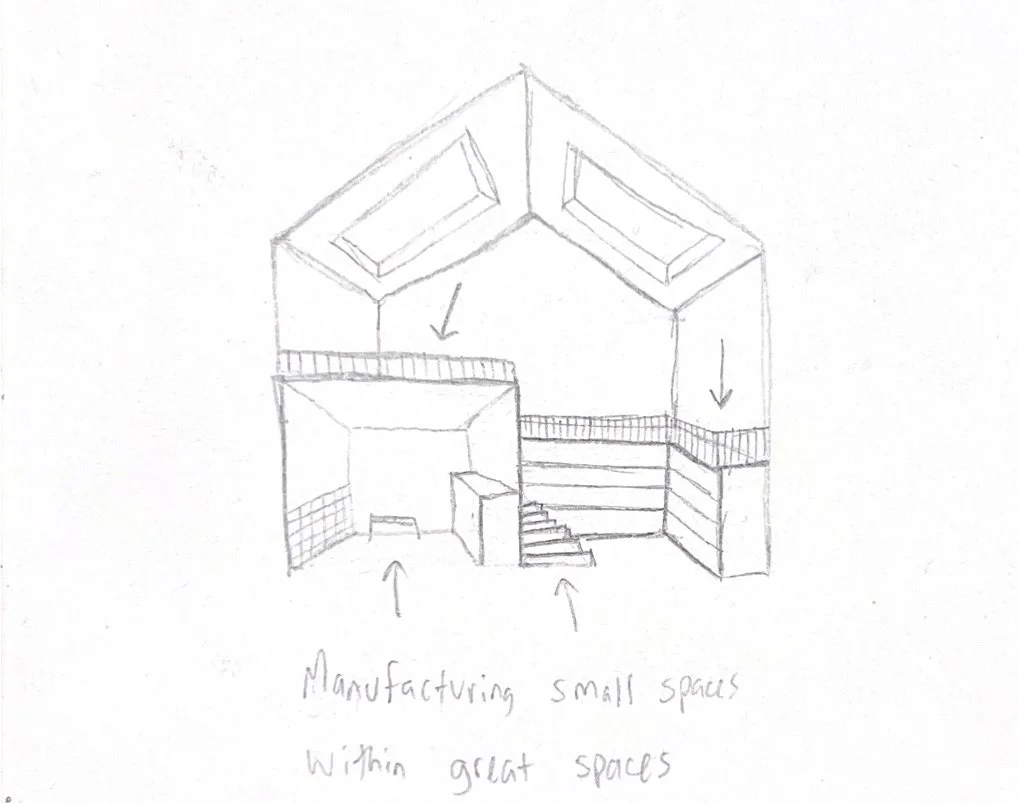 Manufacturing small spaces
within great spaces